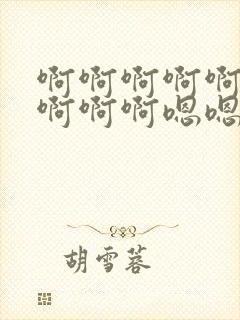 啊啊啊啊啊
啊啊啊嗯嗯
胡雪蓉